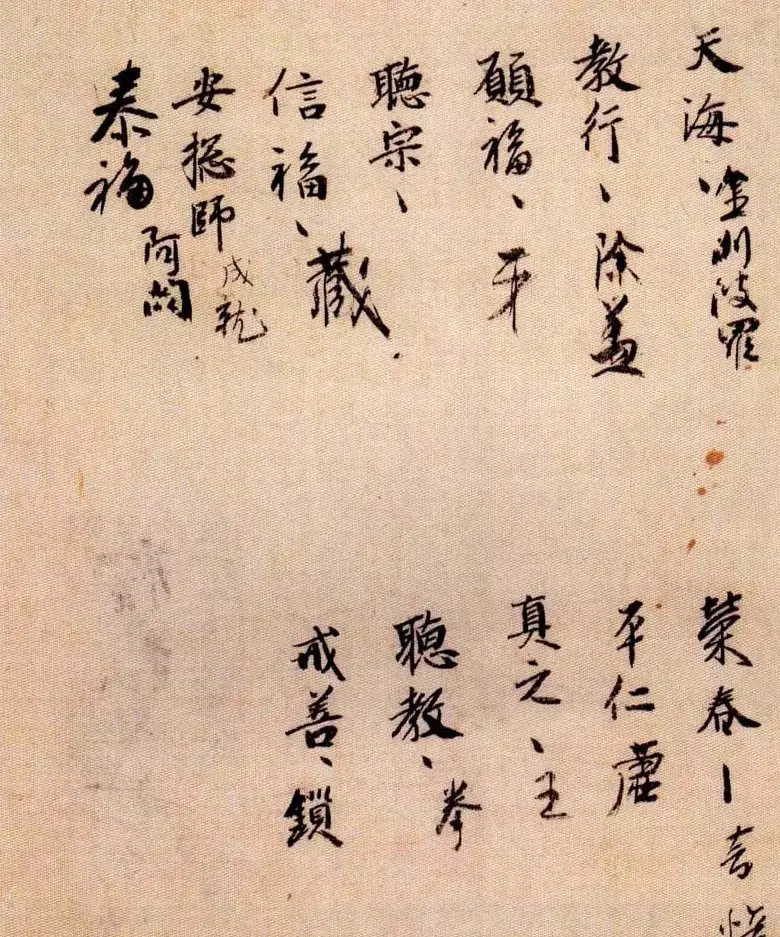 天海、金剛波羅
教行、除蓋
願福、牙
聽宗、
信福、藏
安摠師 成就
泰福 阿閦
榮春｜喜
平仁
真元、王
聽教、拳
戒善、鎖